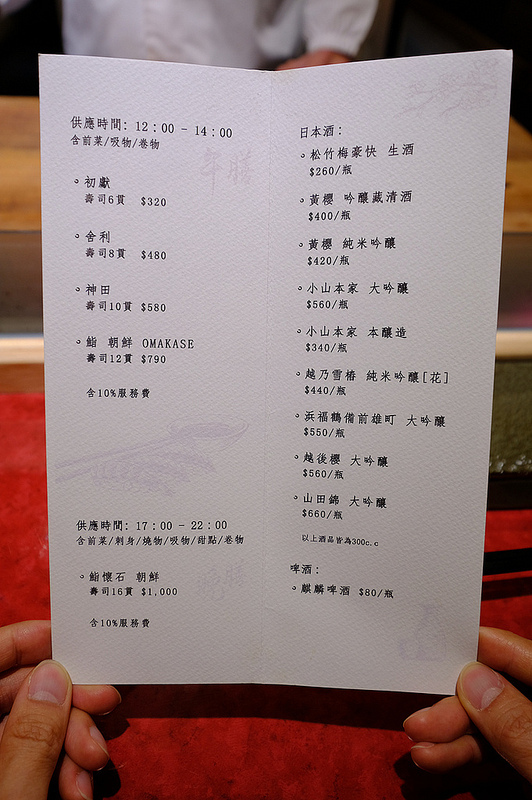 供應時間: 12:00 - 14:00
含前菜/吸物/卷物
。初獻
壽司6貫 $320
。舍利
壽司8貫 $480
。神田
壽司10貫 $580
。鮨 朝鮮 OMAKASE
壽司12貫 $790
含10%服務費
供應時間: 17:00 - 22:00
含前菜/刺身/燒物/吸物/甜點/卷物
。鮨懷石 朝鮮
壽司16貫 $1,000
含10%服務費
日本酒:
。松竹梅豪快 生酒
$260/瓶
。黃櫻 吟釀藏清酒
$400/瓶
。黃櫻 純米吟釀
$420/瓶
。小山本家 大吟釀
$560/瓶
。小山本家 本釀造
$340/瓶
。越乃雪椿 純米吟釀[花]
$440/瓶
。浜福鶴備前雄町 大吟釀
$550/瓶
。越後櫻 大吟釀
$560/瓶
。山田錦 大吟釀
$660/瓶
以上酒品皆為300c.c
啤酒:
。麒麟啤酒 $80/瓶